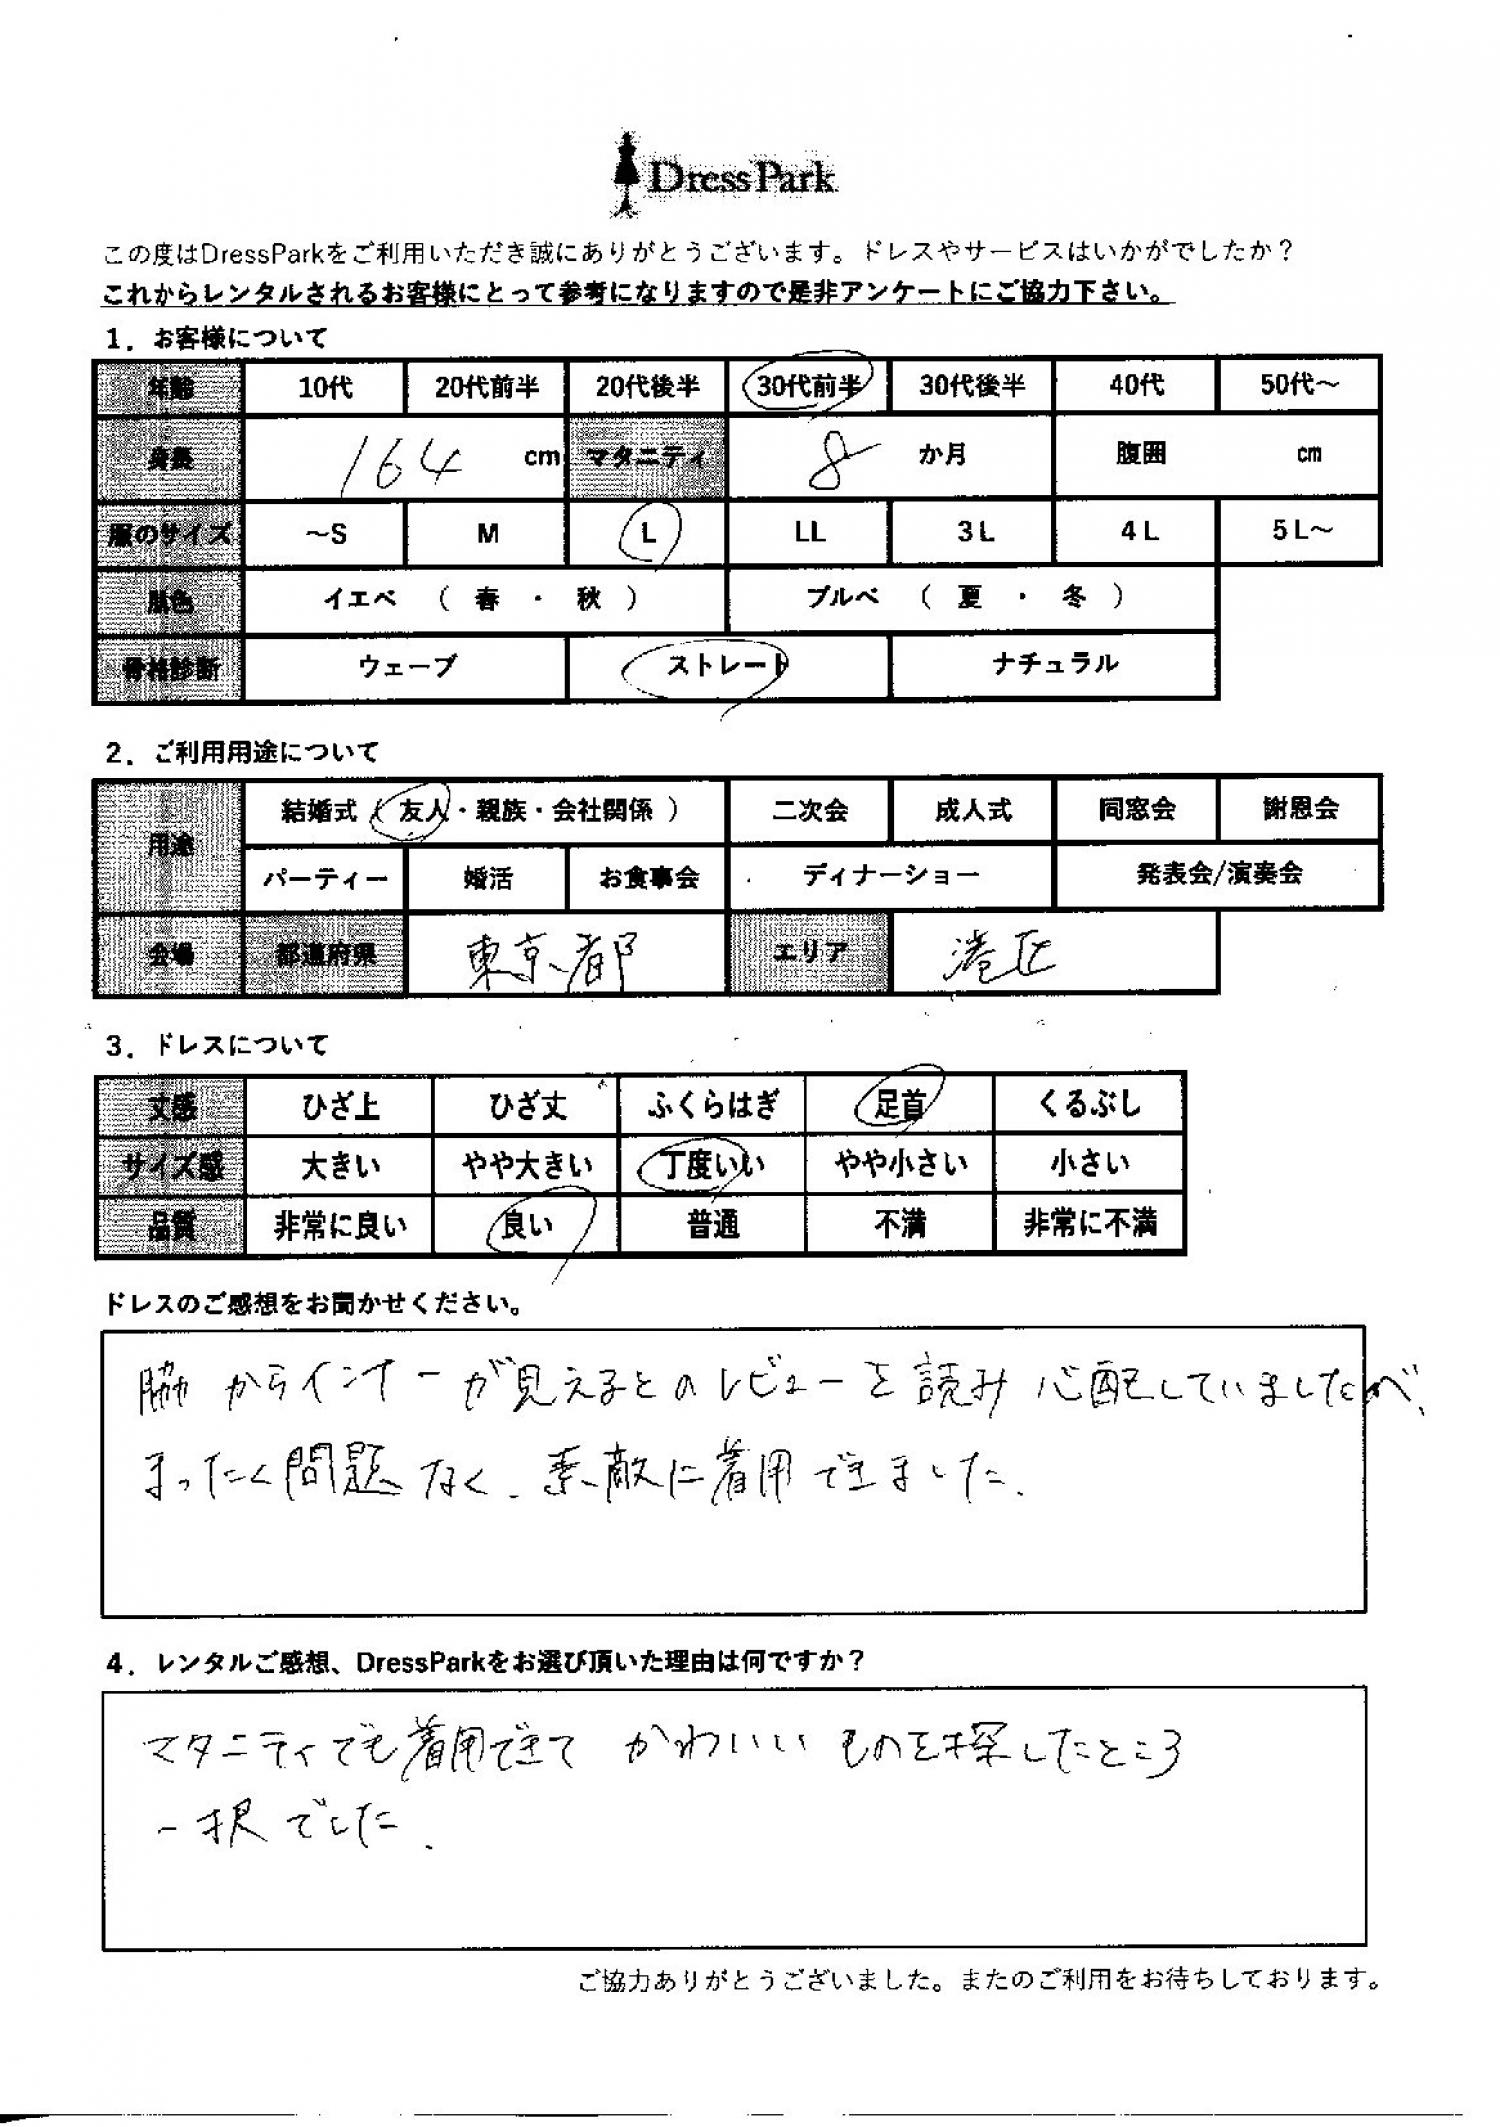 DressPark
この度はDressParkをご利用いただき誠にありがとうございます。ドレスやサービスはいかがでしたか？
これからレンタルされるお客様にとって参考になりますので是非アンケートにご協力下さい。
1．お客様について
年齢 10代 20代前半 20代後半 30代前半 30代後半 40代 50代～
身長 164 cm マタニティ 8 か月 腹囲 cm
服のサイズ ～S M L LL 3L 4L 5L～
肌色 イエベ （ 春 ・ 秋 ） ブルベ （ 夏 ・ 冬 ）
骨格診断 ウェーブ ストレート ナチュラル
2．ご利用用途について
用途 結婚式（ 友人・親族・会社関係 ） 二次会 成人式 同窓会 謝恩会
パーティー 婚活 お食事会 ディナーショー 発表会/演奏会
会場 都道府県 東京都 エリア 港区
3．ドレスについて
丈感 ひざ上 ひざ丈 ふくらはぎ 足首 くるぶし
サイズ感 大きい やや大きい 丁度いい やや小さい 小さい
品質 非常に良い 良い 普通 不満 非常に不満
ドレスのご感想をお聞かせください。
脇からインナーが見えるとのレビューを読み心配していましたが、
まったく問題なく、素敵に着用できました。
4．レンタルご感想、DressParkをお選び頂いた理由は何ですか？
マタニティでも着用できて かわいいものを探したところ
一択でした。
ご協力ありがとうございました。またのご利用をお待ちしております。